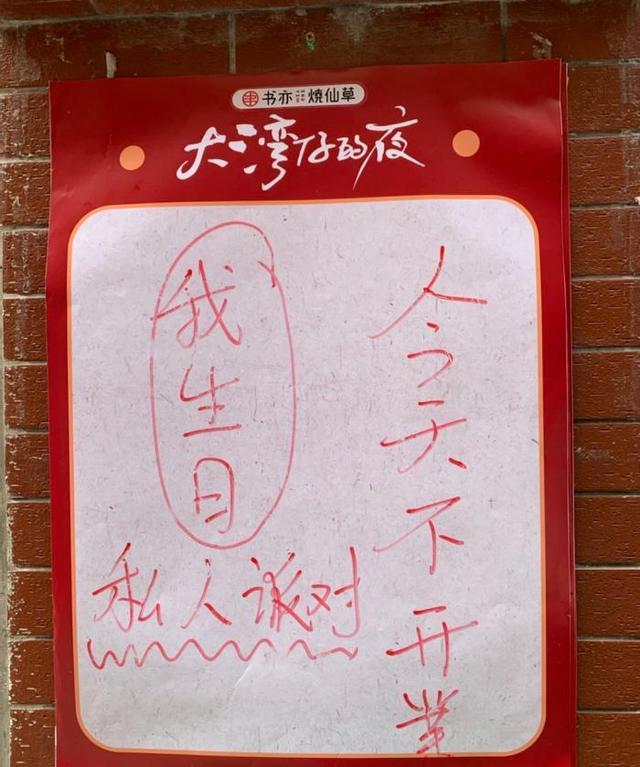 书亦烧仙草
大湾仔的夜
今天不开業
我生日
私人派对